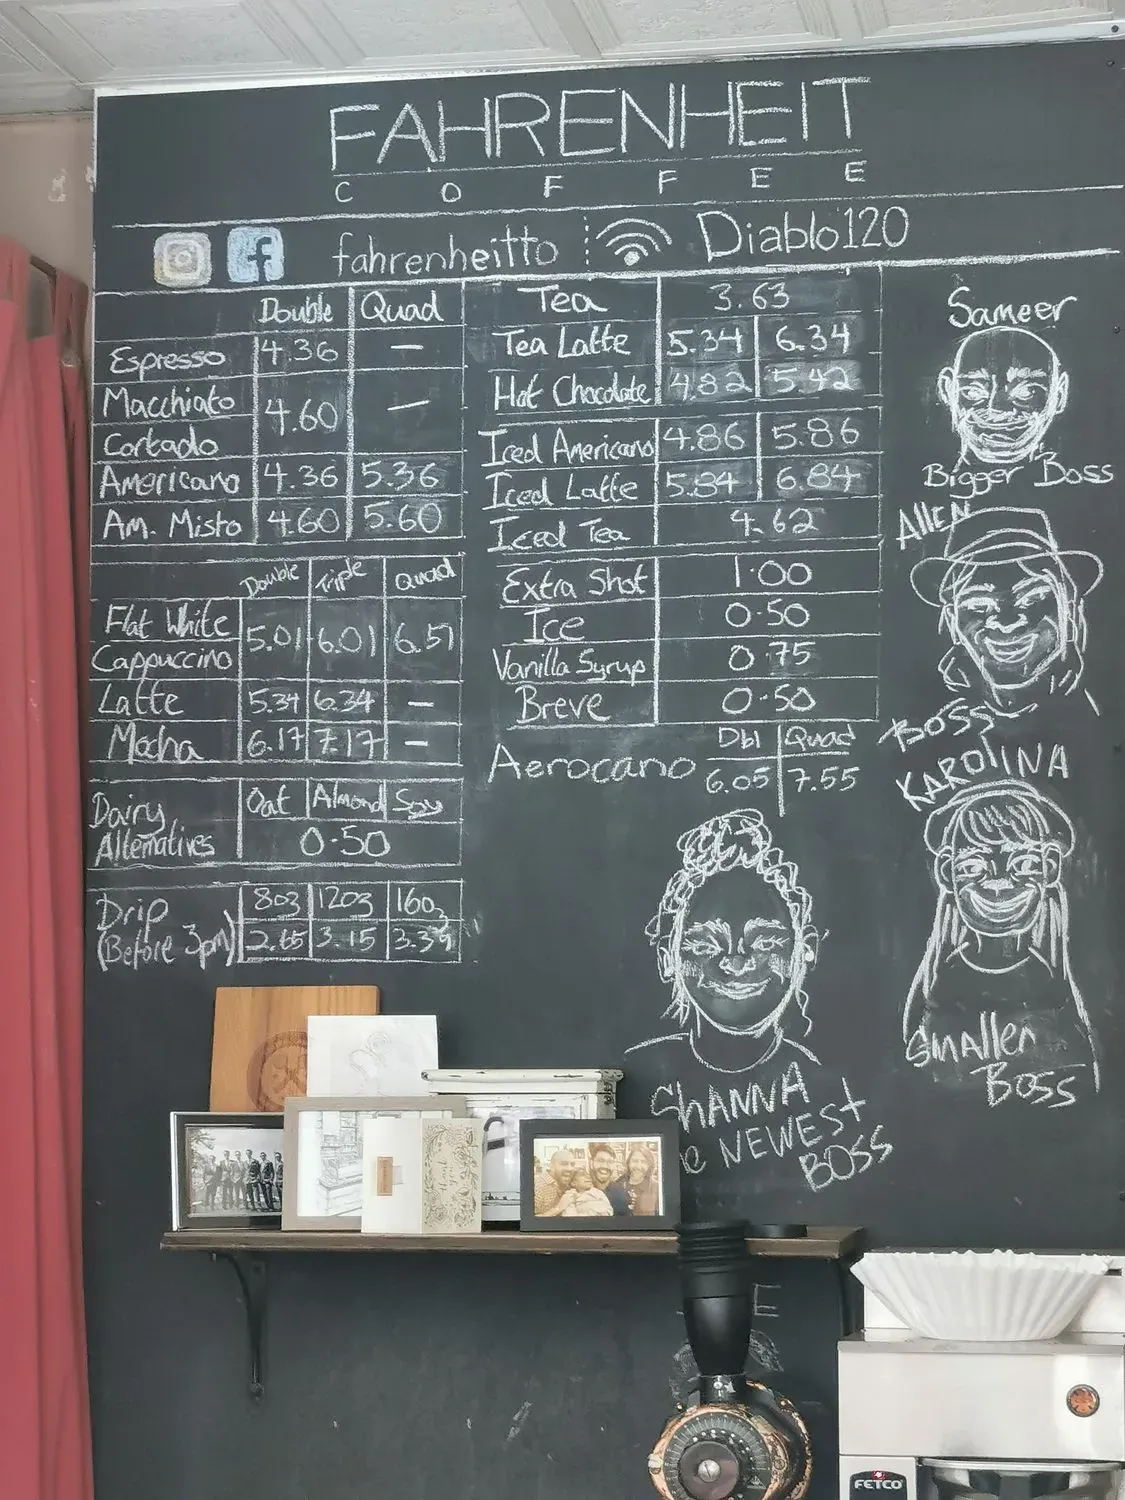 FAHRENHEIT
COFFEE
fahrenheitto
Diablo120
Double Quad
Espresso 4.36 —
Macchiato
Cortado 4.60 —
Americano 4.36 5.36
Am. Misto 4.60 5.60
Double Triple Quad
Flat White
Cappuccino 5.01 6.01 6.51
Latte 5.34 6.34 —
Mocha 6.17 7.17 —
Dairy Oat Almond Soy
Alternatives 0.50
Drip 8oz 12oz 16oz
(Before 3pm) 2.65 3.15 3.39
Tea 3.63
Tea Latte 5.34 6.34
Hot Chocolate 4.82 5.42
Iced Americano 4.86 5.86
Iced Latte 5.84 6.84
Iced Tea 4.62
Extra Shot 1.00
Ice 0.50
Vanilla Syrup 0.75
Breve 0.50
Dbl Quad
Aerocano 6.05 7.55
Sameer
Bigger Boss
ALLEN
BOSS
KAROLINA
SMALLER
BOSS
SHANNA
NEWEST
BOSS
FETCO